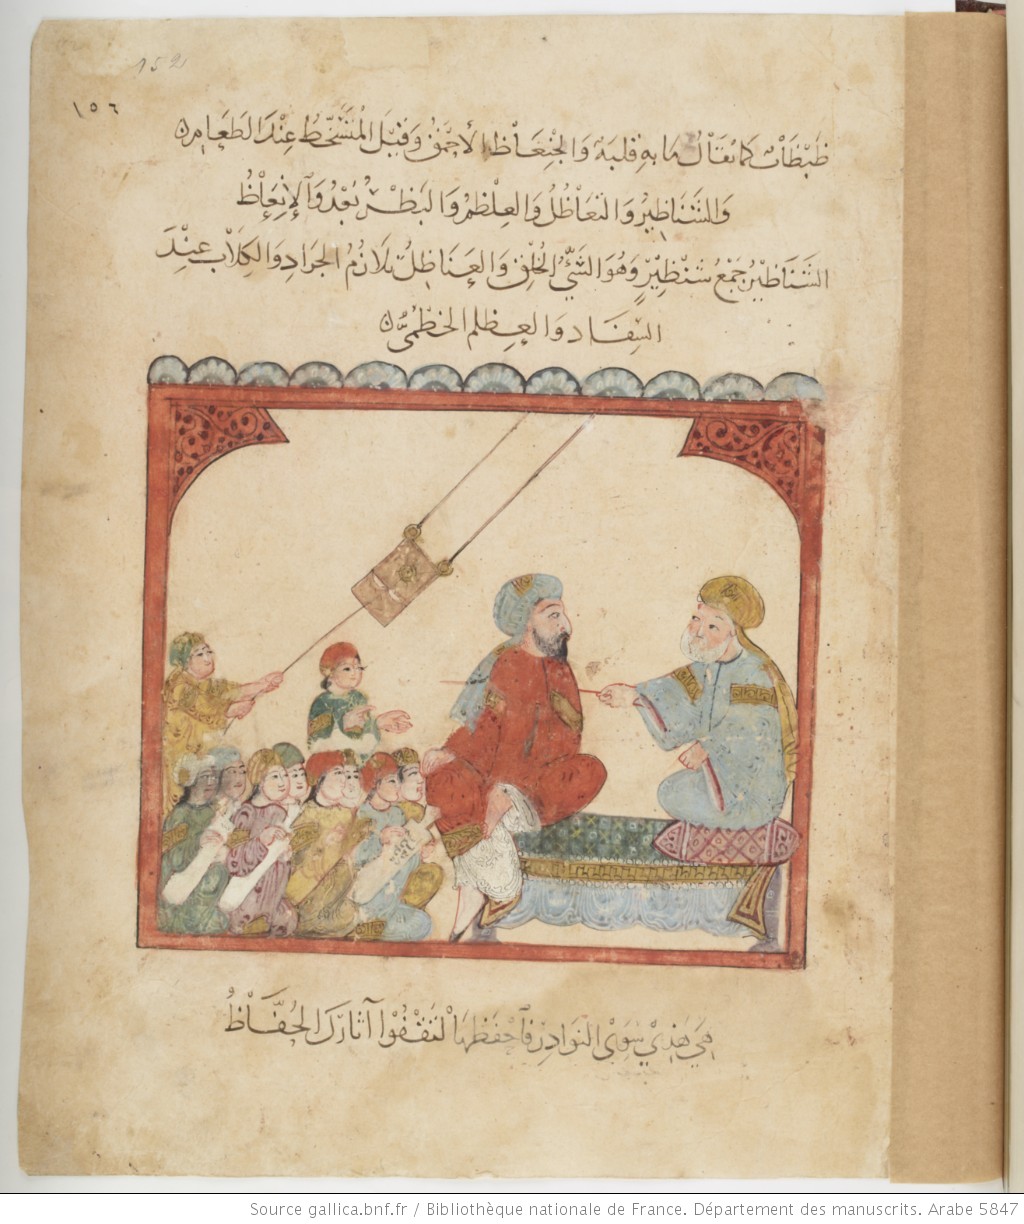 152
١٥٦
ظبظاب كما يقال ما به قلبة والجنعاظ الأحمق وقيل المتسخط عند الطعام
والشناظير والتعاظل والعظلم والبظر بعد والإنعاظ
الشناظير جمع شنظير وهو السيئ الخلق والتعاظل تلازم الجراد والكلاب عند
السفاد والعظلم الخطمي
هي هذي سوى النوادر فاحفظها لتقفو آثارك الحفاظ
Source gallica.bnf.fr / Bibliothèque nationale de France. Département des manuscrits. Arabe 5847